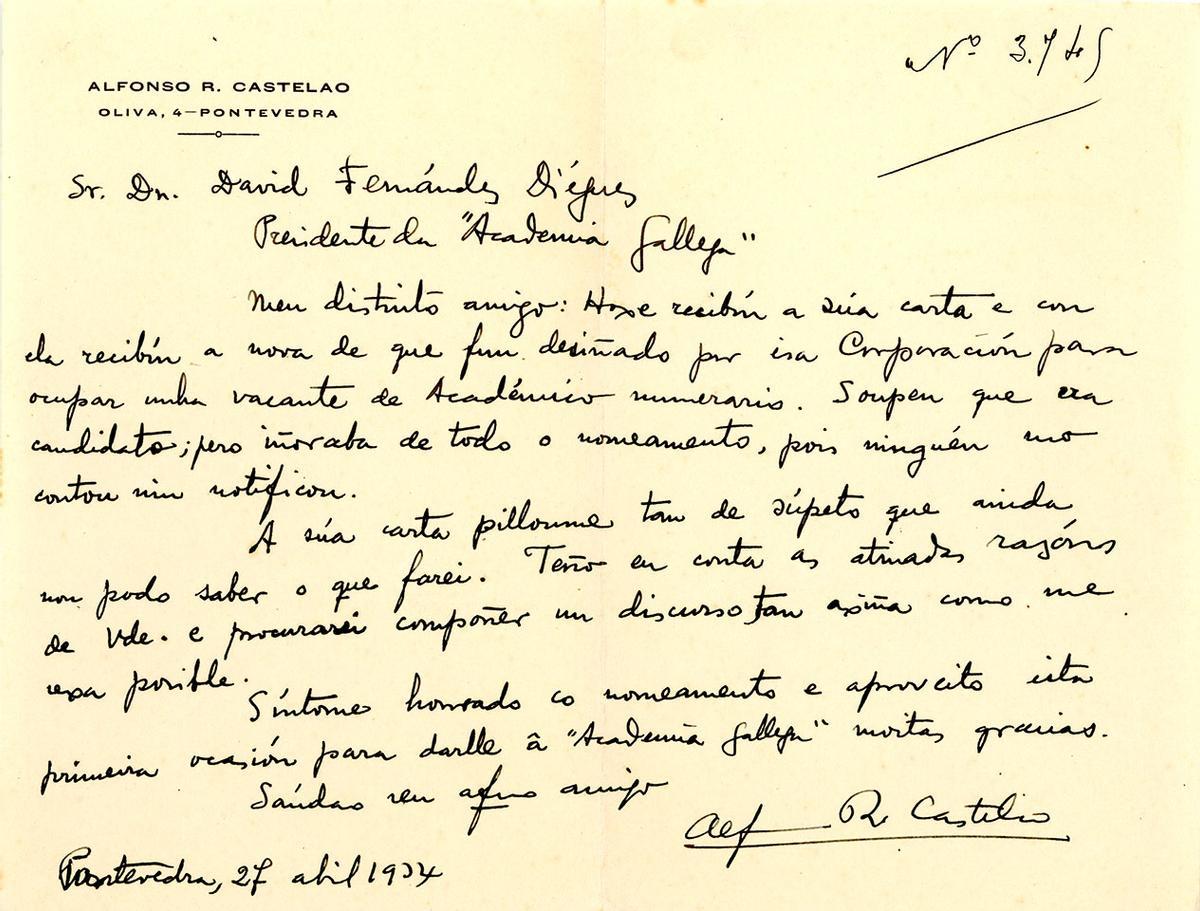 Nº 3.745
ALFONSO R. CASTELAO
OLIVA, 4—PONTEVEDRA
Sr. Dn. David Fernándes Diégues
Presidente da "Academia Gallega"
Meu distinto amigo: Hoxe recibín a súa carta e con
ela recibín a nova de que fun desiñado por isa Corporación para
ocupar unha vacante de Académico numerario. Soupen que era
candidato; pero iñoraba de todo o nomeamento, pois ninguén mo
contou nin notificou.
A súa carta pilloume tan de súpeto que ainda
non podo saber o que farei. Teño en conta as atinadas razóns
de Vde. e procurarei compoñer un discurso tan axiña como me
sexa posible.
Síntome honrado co nomeamento e aproveito ista
primeira ocasión para darlle â "Academia Gallega" moitas gracias.
Saúdao seu afmo amigo
Alf R. Castelao
Pontevedra, 27 abil 1934